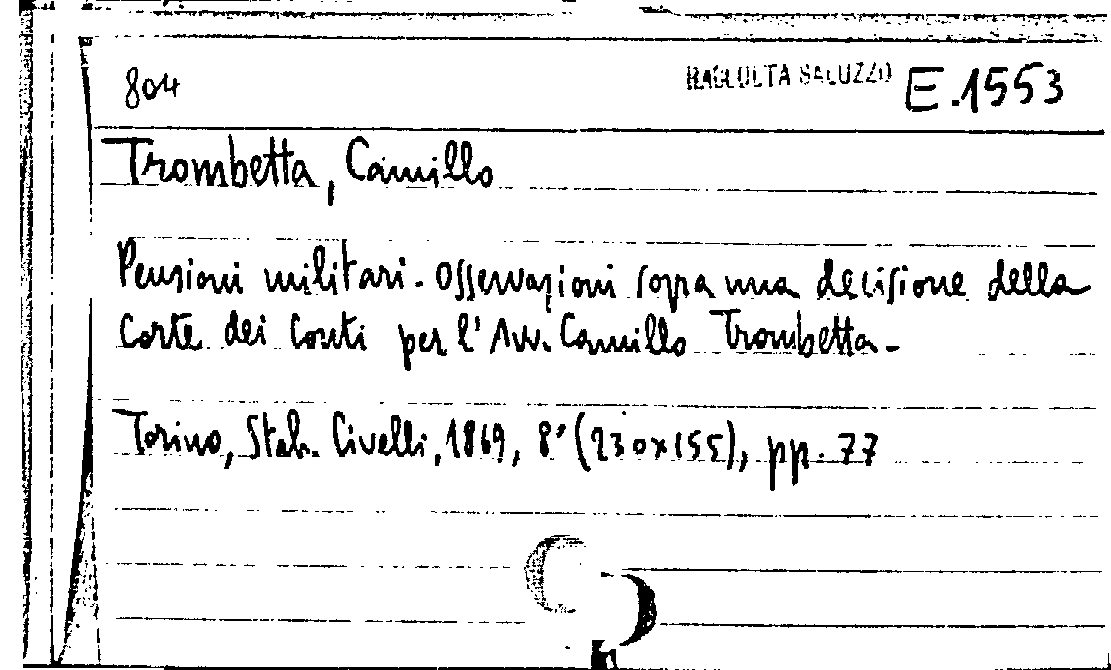 804 RACCOLTA SALUZZO E.1553
Trombetta, Camillo
Pensioni militari. Osservazioni sopra una decisione della
Corte dei Conti per l'Avv. Camillo Trombetta.-
Torino, Stab. Civelli, 1869, 8° (230x155), pp. 77